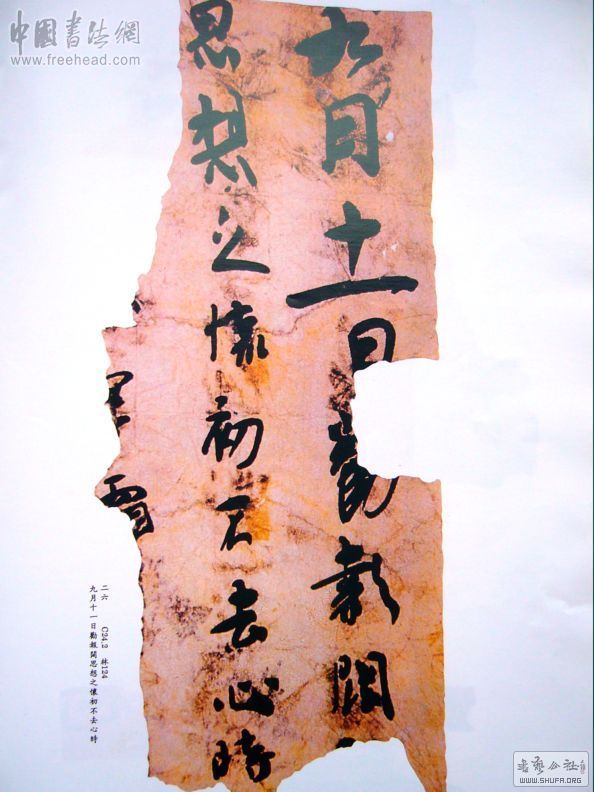 中國書法網
www.freehead.com
九月十一日勸報關
思想之懷初不去心時
二六 C24,2 林124
九月十一日勸報関思想之懷初不去心時
書藝公社
WWW.SHUFA.ORG